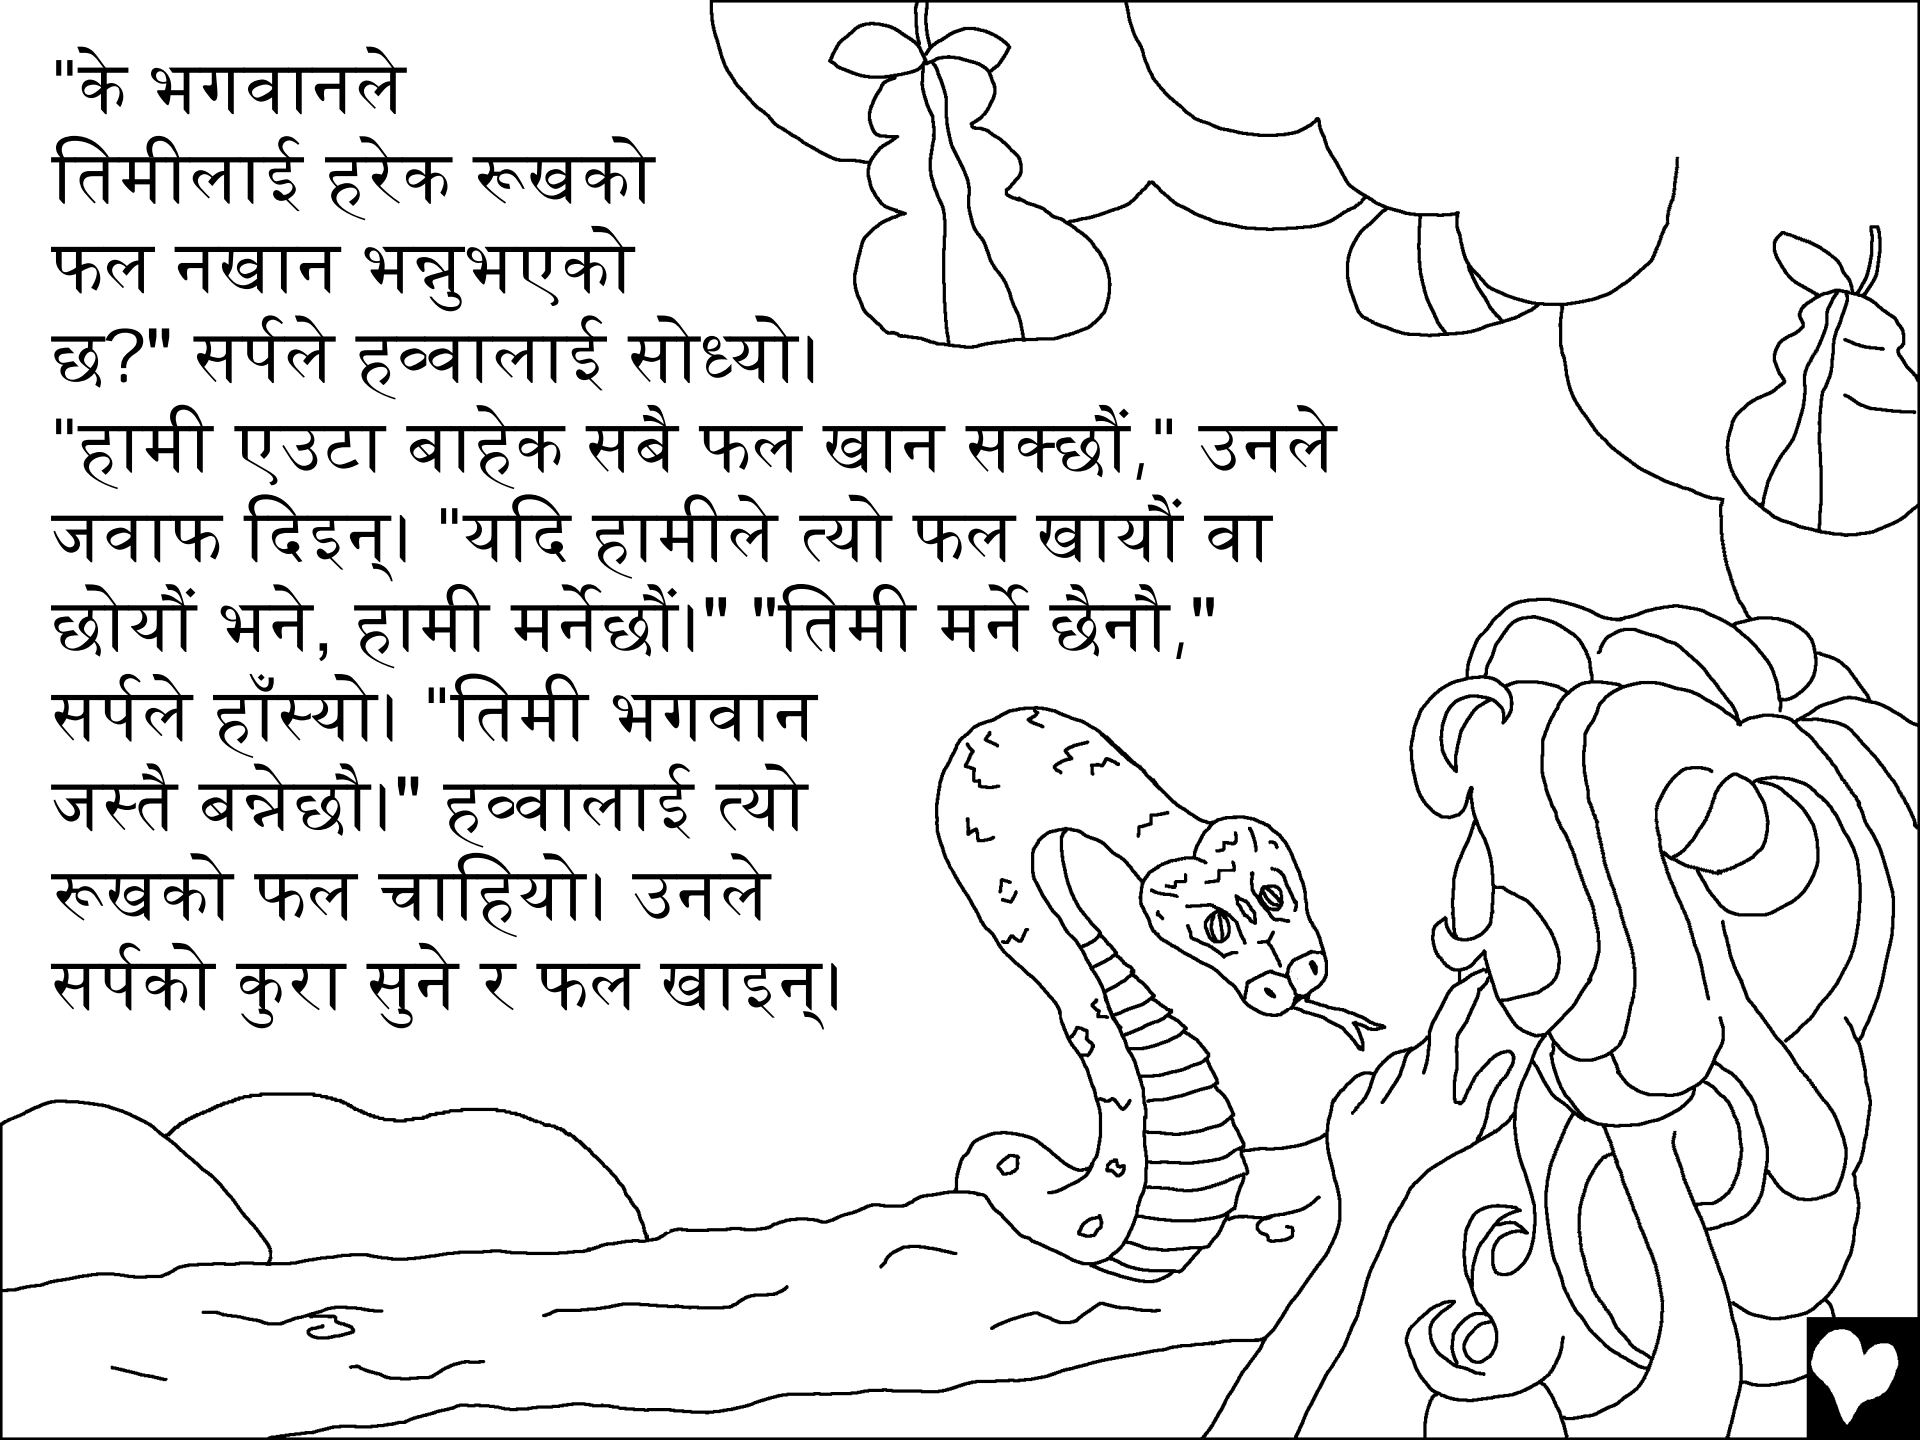 "के भगवानले
तिमीलाई हरेक रूखको
फल नखान भन्नुभएको
छ?" सर्पले हव्वालाई सोध्यो।
"हामी एउटा बाहेक सबै फल खान सक्छौं," उनले
जवाफ दिइन्। "यदि हामीले त्यो फल खायौं वा
छोयौं भने, हामी मर्नेछौं।" "तिमी मर्ने छैनौ,"
सर्पले हाँस्यो। "तिमी भगवान
जस्तै बन्नेछौ।" हव्वालाई त्यो
रूखको फल चाहियो। उनले
सर्पको कुरा सुने र फल खाइन्।